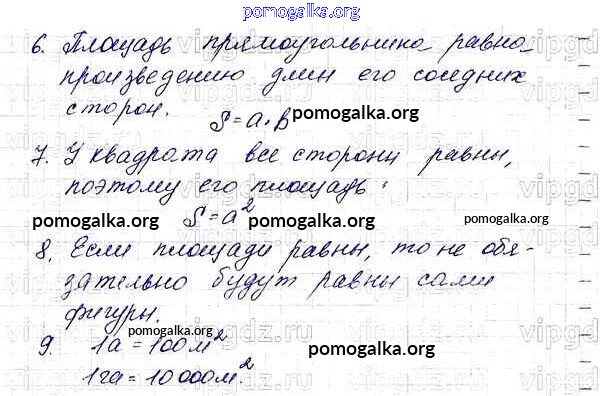 pomogalka.org
6. Площадь прямоугольника равна
произведению длин его соседних
сторон.
S = a · b pomogalka.org
7. У квадрата все стороны равны,
поэтому его площадь:
pomogalka.org S = a² pomogalka.org
8. Если площади равны, то не обя-
зательно будут равны сами
фигуры.
pomogalka.org
9. 1а = 100 м²
pomogalka.org
1га = 10 000 м².